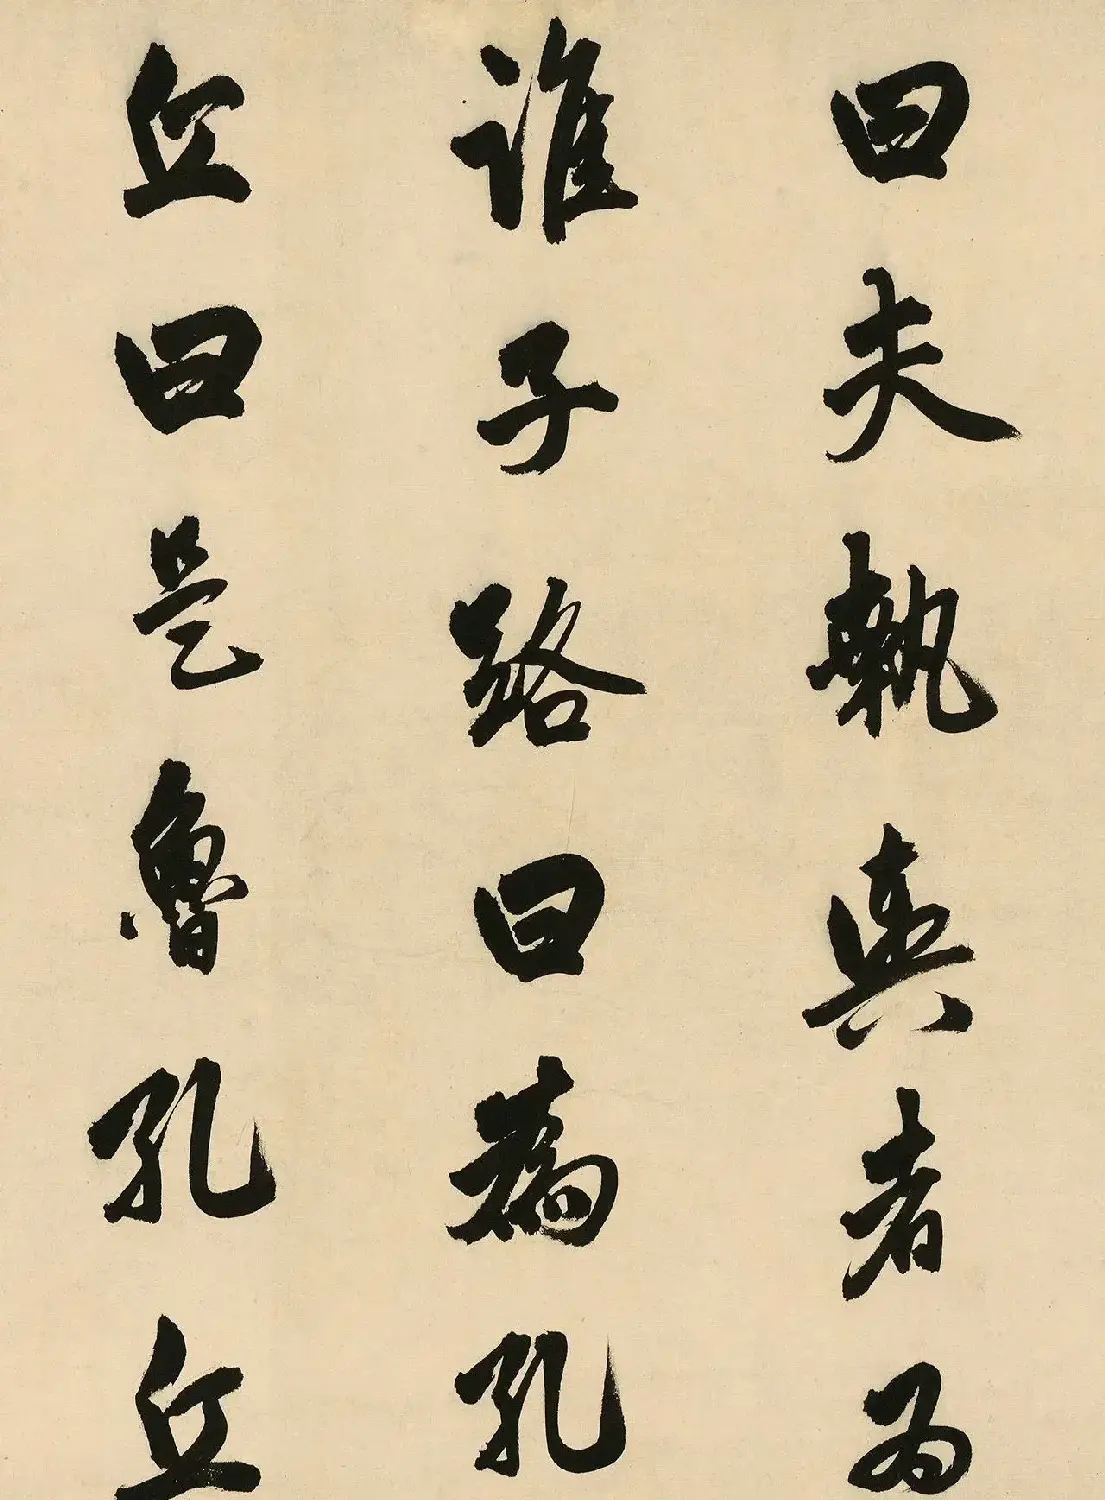 曰夫執輿者為
誰子路曰為孔
丘曰是魯孔丘